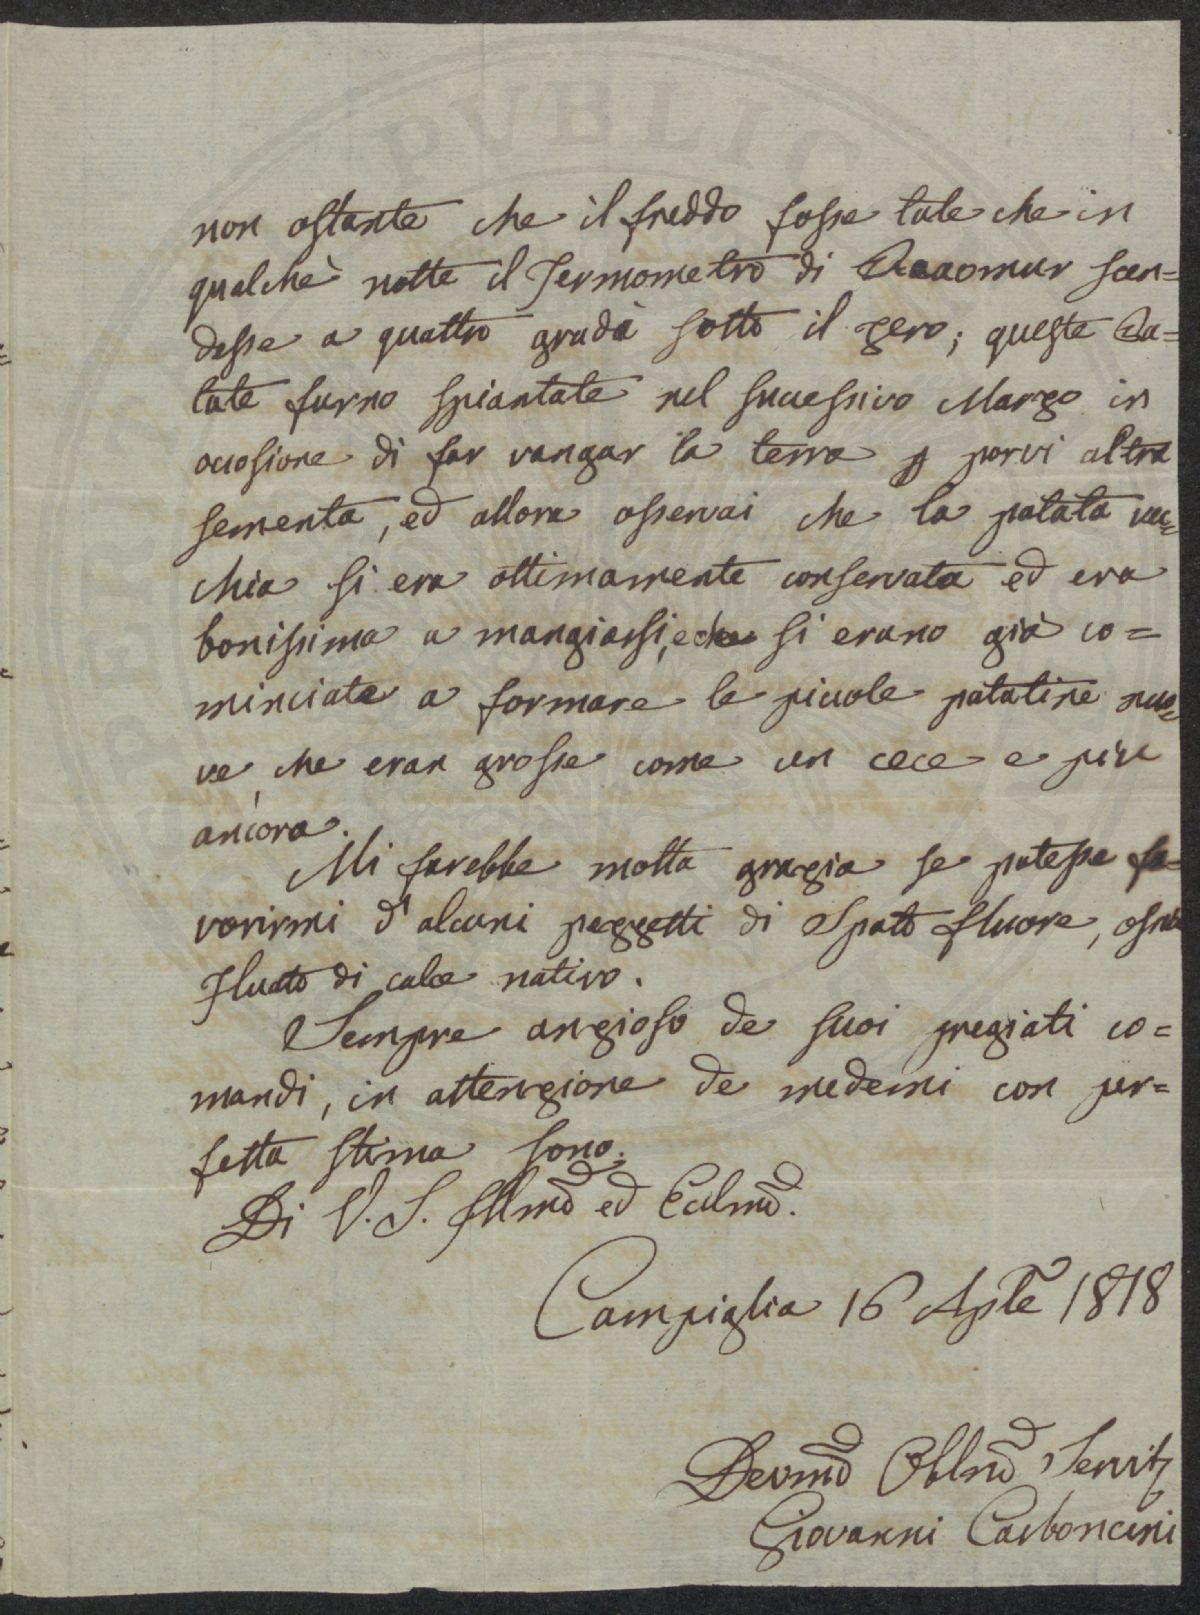 PVBLIC
non ostante che il freddo fosse tale che in
qualche notte il Termometro di Reaomur scen=
desse a quattro gradi sotto il zero; queste Pa=
tate furno spiantate nel successivo Marzo in
occasione di far vangar la terra p porvi altra
sementa, ed allora osservai che la patata vec=
chia si era ottimamente conservata ed era
bonissima a mangiarsi, e che si erano già co=
minciate a formare le piccole patatine nuo=
ve che eran grosse come un cece e piu
ancora.
Mi farebbe molta grazia se potesse fa=
vorirmi d'alcuni pezzetti di Spato fluore, ossia
Fluato di calce nativo.
Sempre anzioso de suoi pregiati co=
mandi, in attenzione de medemi con per=
fetta stima sono.
Di V. S. Illmo ed Ecclmo.
Campiglia 16 Aple 1818
Devmo Oblmo Servit
Giovanni Carboncini